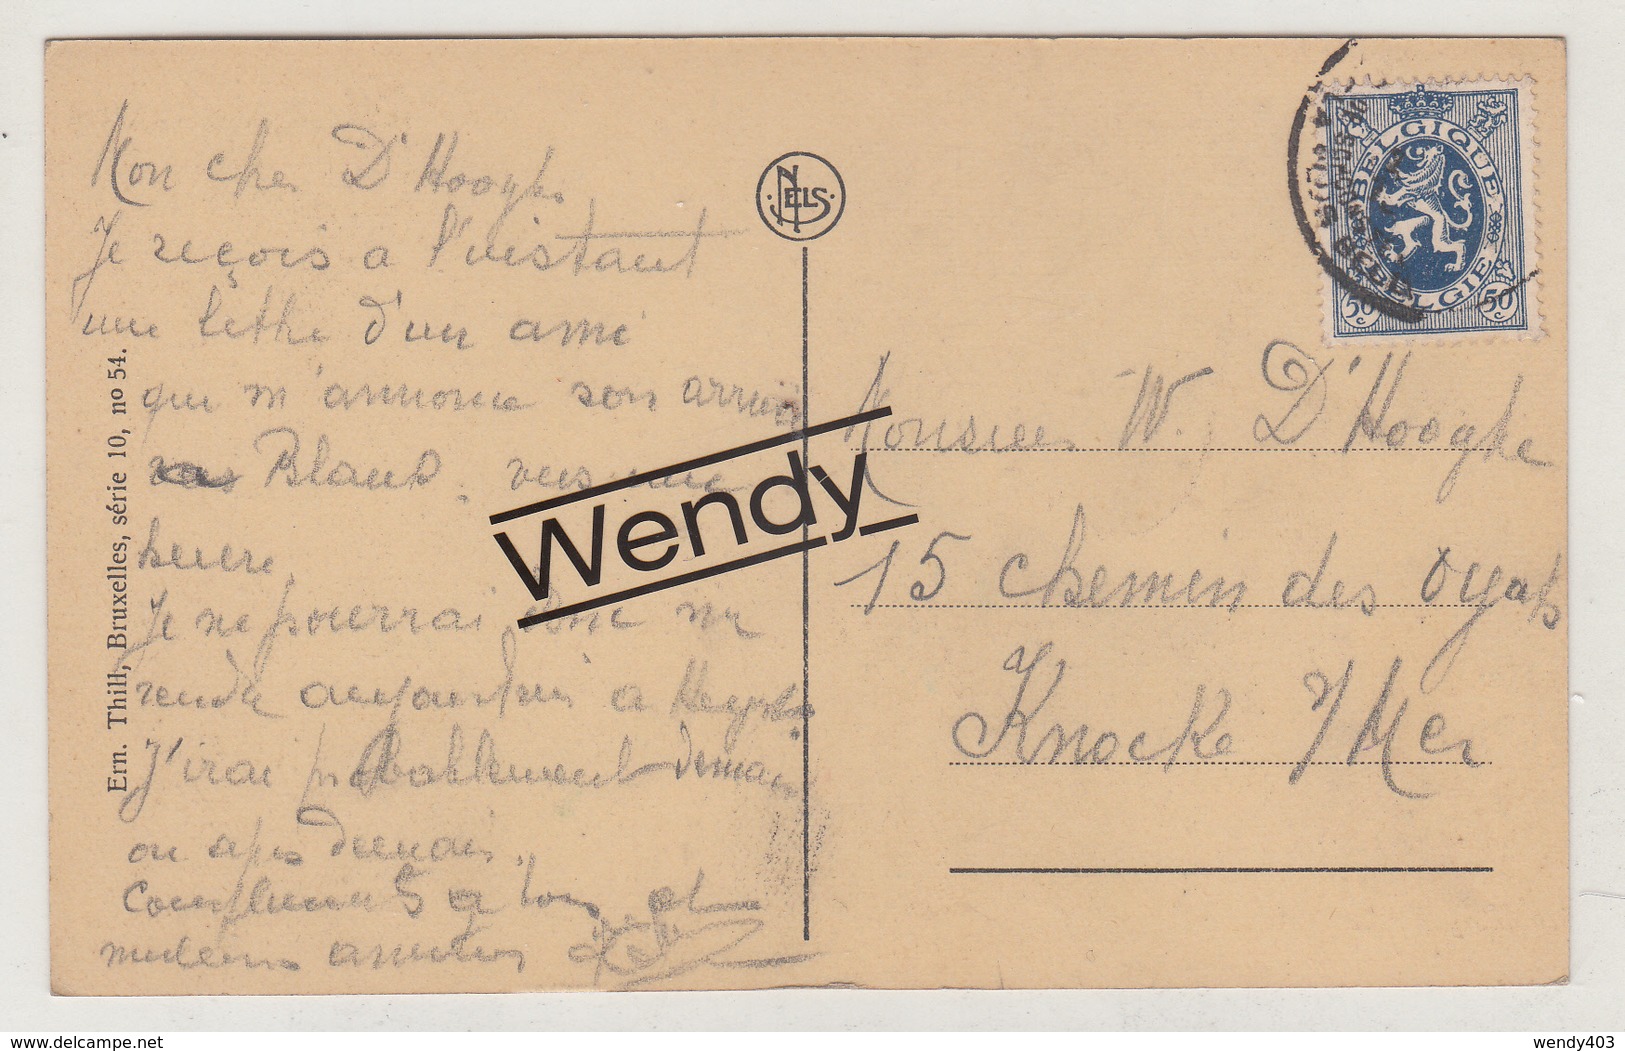 Mon cher D'Hooghe
Je reçois a l'instant
une lettre d'un ami
qui m'annonce son arrivée
Blanc. vers une
heure.
Je ne pourrai donc me
rendre aujourd'hui a Heyst.
J'irai probablement demain
ou après demain.
Compliments a tous et
meilleures amitiés
Ern. Thill, Bruxelles, série 10, no 54.
NELS
BELGIQUE
BELGIE
50 c
50 c
Monsieur W. D'Hooghe
15 chemin des Oyats
Knocke s/Mer
Wendy
delcampe.net
wendy403